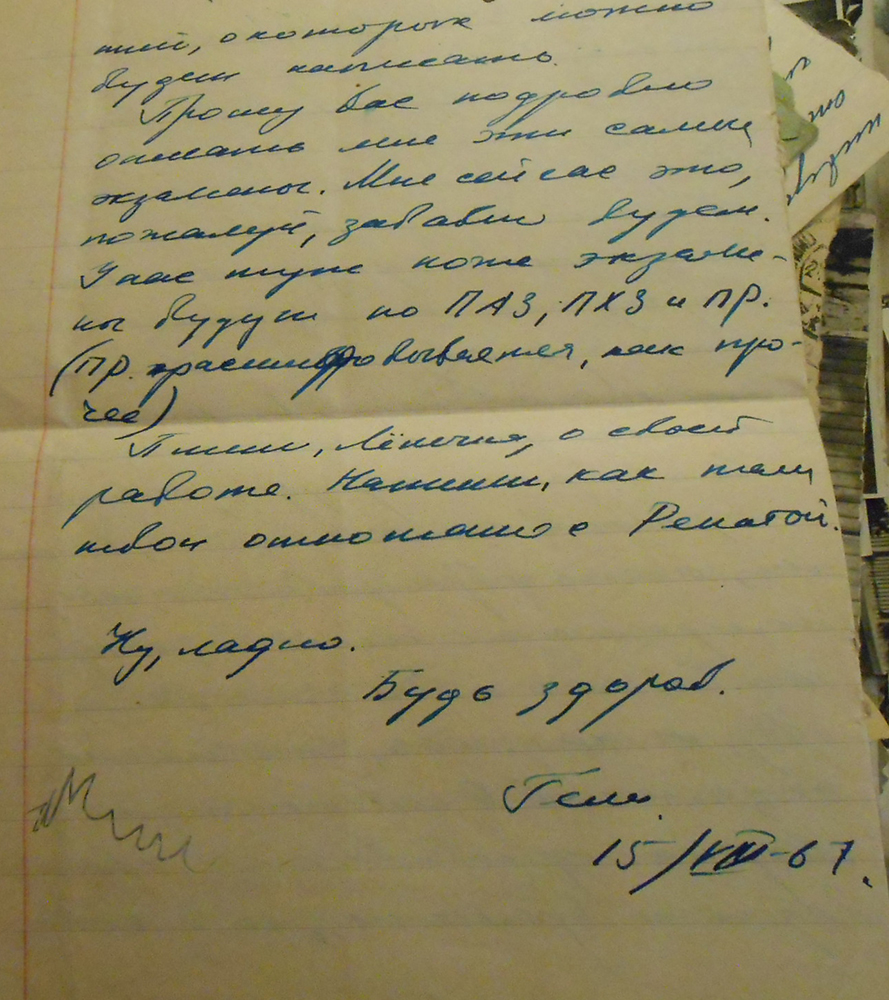 тий, о которых можно
будет написать.
Прошу Вас подробно
описать мне эти самые
экзамены. Мне сейчас это,
пожалуй, забавно будет.
У нас тут тоже экзаме-
ны будут по ПАЗ, ПХЗ и ПР.
(ПР. расшифровывается, как про-
чее)
Пиши, Лёнечка, о своей
работе. Напиши, как там
твои отношения с Ренатой.
Ну, ладно.
Будь здоров.
15/VIII-67.